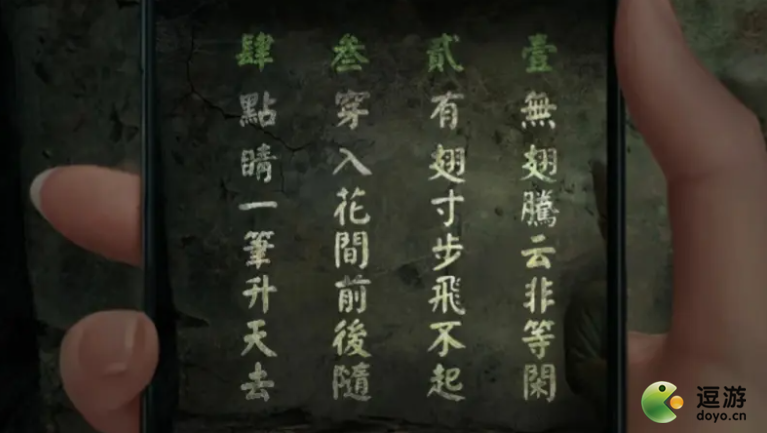 壹
無翅騰云非等閑
貳
有翅寸步飛不起
叁
穿入花間前後隨
肆
點睛一筆升天去
逗游
doyo.cn